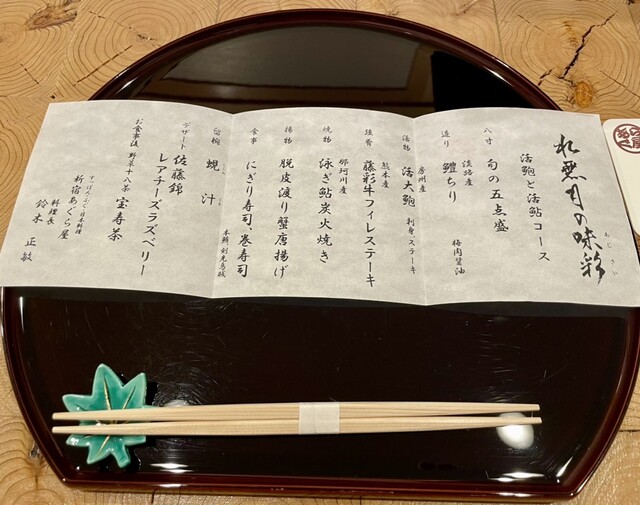 水無月の味彩
あじさい
活鮑と活鮎コース
八寸 旬の五点盛
造り 淡路産 鱧ちり 梅肉醤油
活物 房州産 活大鮑 刺身、ステーキ
強肴 熊本産 藤彩牛フィレステーキ
焼物 那珂川産 泳ぎ鮎炭火焼き
揚物 脱皮渡り蟹唐揚げ
食事 にぎり寿司、巻寿司
留椀 蜆汁
デザート 佐藤錦
レアチーズラズベリー
お食事後 野菜十八茶 宝寿茶
すっぽん・ふぐ・日本料理
新宿あぐら屋
料理長 鈴木 正敏